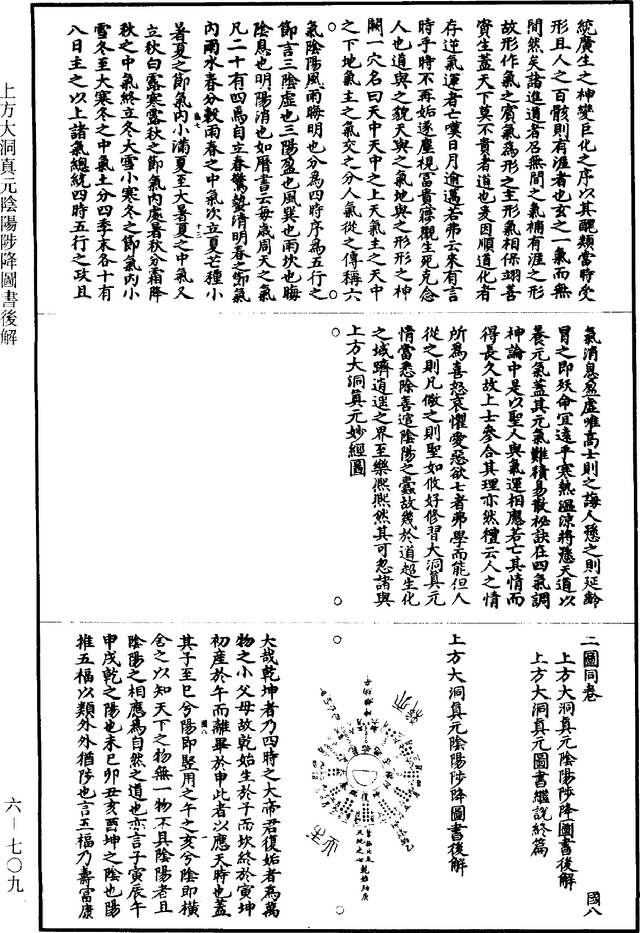 統廣生之神變巨化之序以其醜類當時受
形且人之百骸則有涯者也玄之一氣而無
間然矣諸進道者召無間之氣補有涯之形
故形作氣之賓氣為形之主形氣相保翊善
資生蓋天下莫不貴者道也爰因順道化者
存逆氣運者亡噗日月逾邁若弗云來有言
時乎時不再姤遂塵視富貴薜觀生死克念
人也道與之貌天與之氣地與之形形之神
闕一穴名曰天中天中之上天氣主之天中
之下地氣主之氣交之分人氣從之傳稱六
氣陰陽風雨晦明也分為四時序為五行之
節言三陰虛也三陽盈也風巽也雨坎也晦
陰息也明陽消也如曆書云每歲周天之氣
凡二十有四焉自立春驚蟄清明春之節氣
內雨水春分穀雨春之中氣次立夏芒種小
暑夏之節氣內小滿夏至大暑夏之中氣又
立秋白露寒露秋之節氣內處暑秋分霜降
秋之中氣終立冬大雪小寒冬之節氣內小
雪冬至大寒冬之中氣土分四季末各十有
八日主之以上諸氣總統四時五行之政且
氣消息盈虛唯高士則之誨人懸之則延齡
冒之即殀命宜遠乎寒熱溫涼將懸天道以
養元氣蓋其元氣難積易散祕訣在四氣調
神論中是以聖人與氣運相應若亡其情而
得長久故上士參合其理亦然禮云人之情
所為喜怒哀懼愛惡欲七者弗學而能但人
從之則凡儆之則聖如攸好修習大洞真元
情當悉除善逭陰陽之蠹故幾於道超生化
之域躋逍遥之界至樂熙熙然其可忽諸與
上方大洞真元妙經圖
二圖同卷
上方大洞真元陰陽陟降圖書後解
上方大洞真元圖書繼說終篇
國八
上方大洞真元陰陽陟降圖書後解
大哉乾坤者乃四時之大帝君復姤者為萬
物之小父母故乾始生於子而坎終於寅坤
初產於午而離畢於申此者以應天時也蓋
其子至巳兮陽即竪用之午之亥兮陰即橫
舍之以知天下之物無一物不具陰陽者且
陰陽之相應為自然之道也亦言子寅辰午
申戌乾之陽也未巳卯丑亥酉坤之陰也陽
推五福以類外外猶陟也言五福乃壽富康
上方大洞真元陰陽陟降圖書後解
六—七〇九